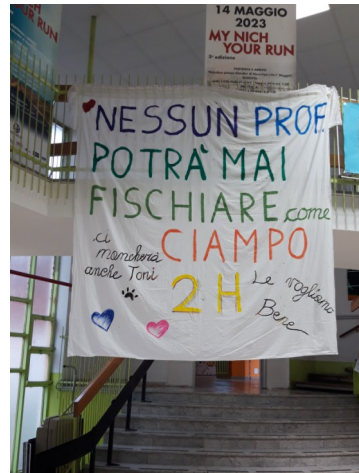 14 MAGGIO
2023
MY NICH
YOUR RUN
NESSUN PROF
POTRÀ MAI
FISCHIARE come
CIAMPO
ci
mancherà
anche Toni
2 H
Le vogliamo
Bene